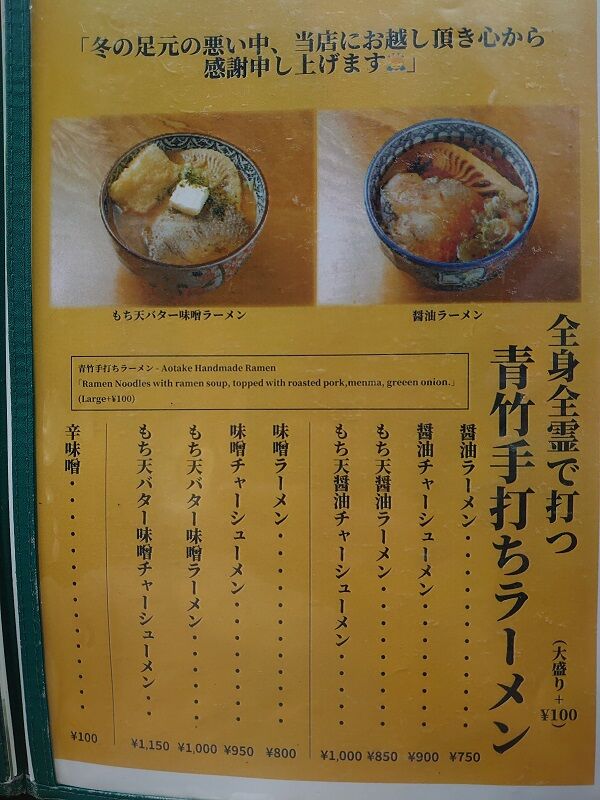 「冬の足元の悪い中、当店にお越し頂き心から
感謝申し上げます🙇」
もち天バター味噌ラーメン
醤油ラーメン
全身全霊で打つ
青竹手打ちラーメン
(大盛り+¥100)
青竹手打ちラーメン - Aotake Handmade Ramen
「Ramen Noodles with ramen soup, topped with roasted pork,menma, greeen onion.」
(Large+¥100)
醤油ラーメン・・・・・・・・・ ¥750
醤油チャーシューメン・・・・・・ ¥900
もち天醤油ラーメン・・・・・・・ ¥850
もち天醤油チャーシューメン・・・・ ¥1,000
味噌ラーメン・・・・・・・・・ ¥800
味噌チャーシューメン・・・・・・ ¥950
もち天バター味噌ラーメン・・・・・ ¥1,000
もち天バター味噌チャーシューメン・・ ¥1,150
辛味噌・・・・・・・・・・・・ ¥100